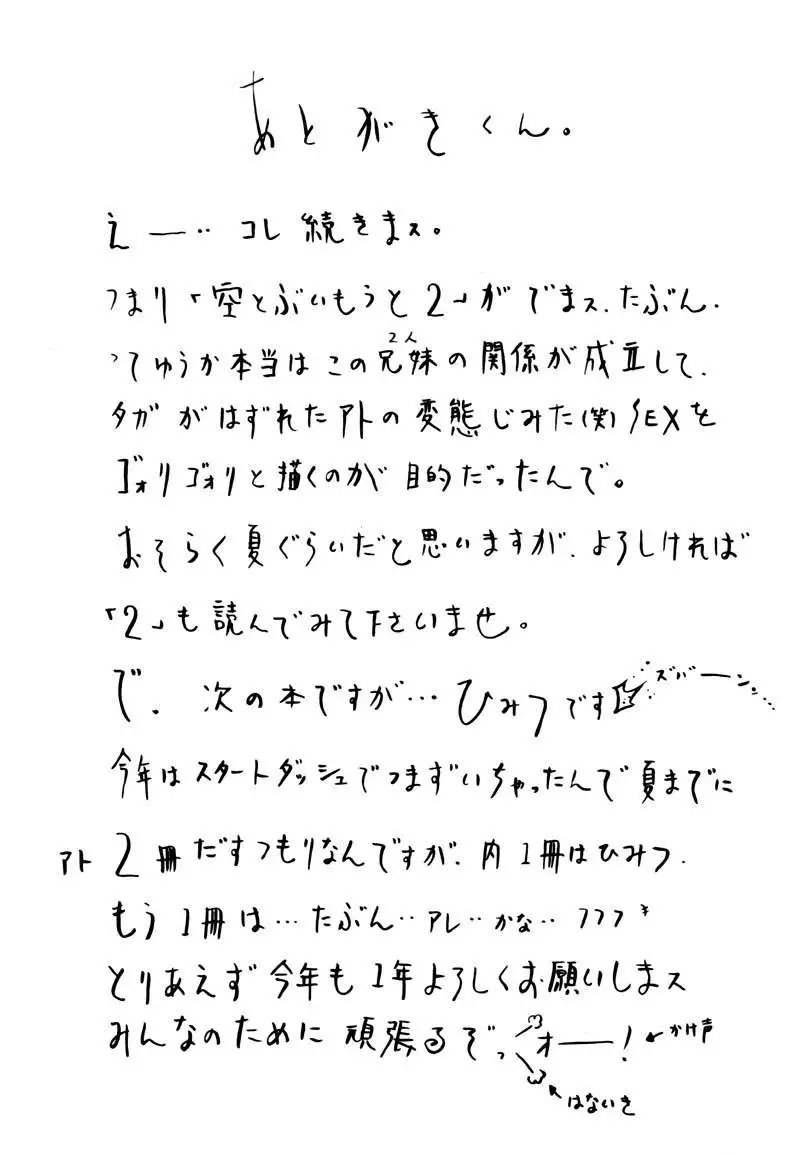 あとがきくん。
え——‥コレ続きまス。
つまり「空とぶいもうと2」がでまス.たぶん.
ってゆうか本当はこの兄妹の関係が成立して、
2人
タガがはずれたアトの変態じみた(笑)SEXを
ゴォリゴォリと描くのが目的だったんで。
おそらく夏ぐらいだと思いますが、よろしければ
「2」も読んでみて下さいませ。
で、次の本ですが…ひみつです
ズバーーン。…
今年はスタートダッシュでつまずいちゃったんで夏までに
アト2冊だすつもりなんですが、内1冊はひみつ.
もう1冊は…たぶん‥アレ‥かな‥フフフ
とりあえず今年も1年よろしくお願いしまス
みんなのために頑張るぞっオ——!
←かけ声
はないき